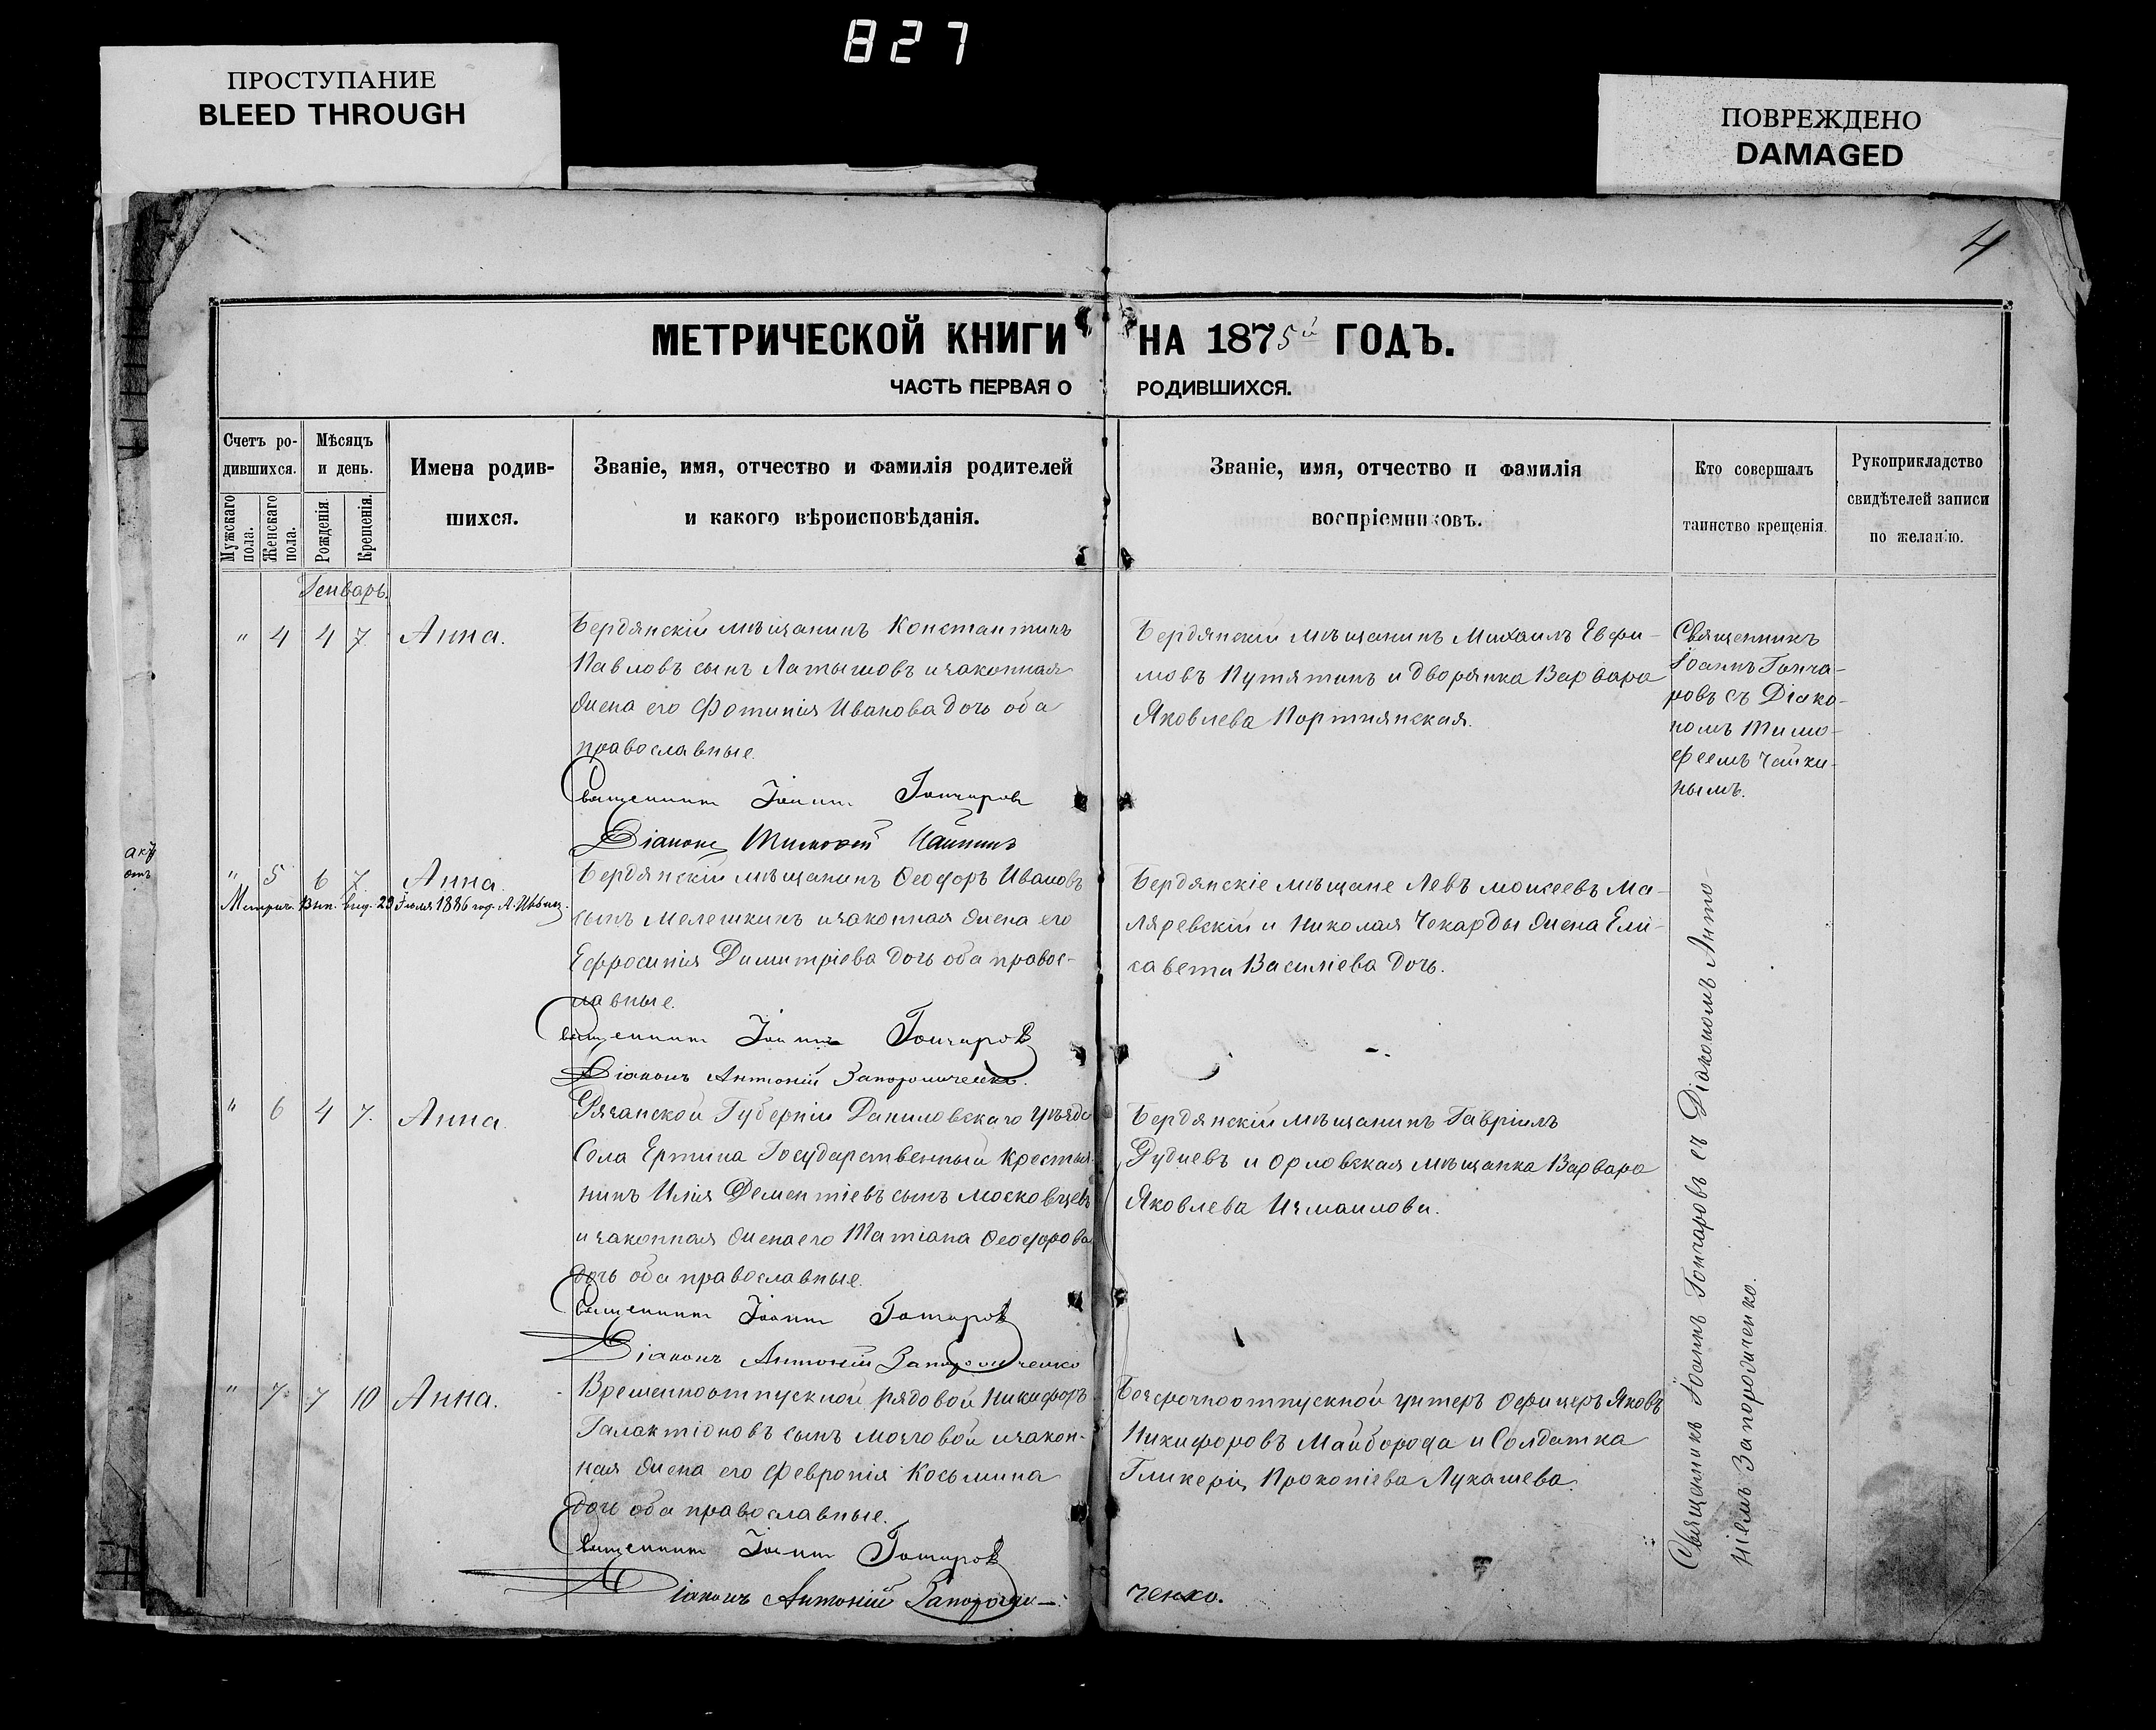 827
ПРОСТУПАНИЕ
BLEED THROUGH
ПОВРЕЖДЕНО
DAMAGED
4
МЕТРИЧЕСКОЙ КНИГИ НА 1875й ГОДЪ.
ЧАСТЬ ПЕРВАЯ О РОДИВШИХСЯ.
Счетъ ро-
дившихся.
Мужскаго пола.
Женскаго пола.
Мѣсяцъ
и день.
Рожденія
Крещенія.
Имена родив-
шихся.
Званіе, имя, отчество и фамилія родителей
и какого вѣроисповѣданія.
Званіе, имя, отчество и фамилія
воспріемниковъ.
Кто совершалъ
таинство крещенія.
Рукоприкладство
свидѣтелей записи
по желанію.
Генварь.
" 4 4 7 Анна.
Бердянскій мѣщанинъ Константинъ
Павловъ сынъ Латышовъ и законная
жена его Фотинія Иванова дочь оба
православные.
Священникъ Іоаннъ Гончаровъ
Діаконъ Тимофей Чайкинъ
Бердянскій мѣщанинъ Михаилъ Евфи-
мовъ Путятинъ и дворянка Варвара
Яковлева Портнянская.
Священникъ
Іоаннъ Гонча-
ровъ съ Діако-
номъ Тимо-
феемъ Чайки-
нымъ.
" 5 6 7 Анна.
Метрич. Вып. выд. 29 Іюля 1886 год.
Бердянскій мѣщанинъ Ѳеодоръ Ивановъ
сынъ Мелешкинъ и законная жена его
Ефросинія Димитріева дочь оба правос-
лавные.
Священникъ Іоаннъ Гончаровъ
Діаконъ Антоній Запорожченко.
Бердянскіе мѣщане Левъ Моисеевъ Ма-
ляревскій и Николая Чекарды жена Ели-
савета Василіева дочь.
" 6 4 7. Анна.
Рязанской Губерніи Даниловскаго уѣзда
Села Ертина Государственный крестья-
нинъ Илія Дементіевъ сынъ Московцевъ
и законная жена его Татіана Ѳеодорова
дочь оба православные.
Священникъ Іоаннъ Гончаровъ
Діаконъ Антоній Запорожченко
Бердянскій мѣщанинъ Гавріилъ
Рудневъ и Орловская мѣщанка Варвара
Яковлева Измаилова.
" 7. 7 10 Анна.
Временноотпускной рядовой Никифоръ
Галактіоновъ сынъ Мозговой и закон-
ная жена его Февронія Косьмина
дочь оба православные.
Священникъ Іоаннъ Гончаровъ
Діаконъ Антоній Запорож-
ченко.
Безсрочноотпускной унтеръ Офицеръ Яковъ
Никифоровъ Майборода и Солдатка
Гликерія Прокопіева Лукашева.
Священникъ Іоаннъ Гончаровъ съ Діакономъ Анто-
ніемъ Запорожченко.